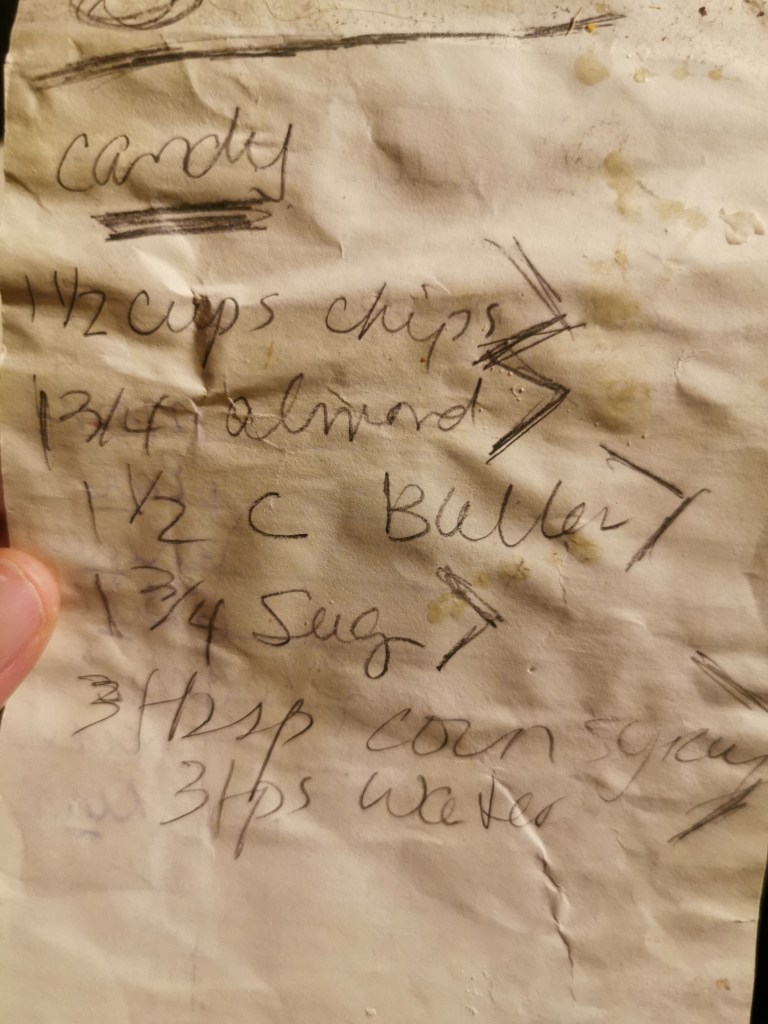 candy
1 1/2 cups chips
1 3/4 almond
1 1/2 C Butter
1 3/4 Sug
3 tbsp corn
3 tps water